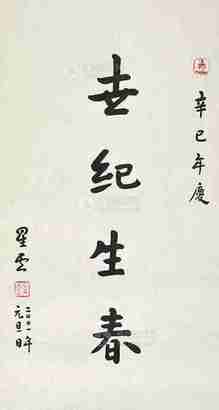 辛巳年慶
世紀生春
星雲
二〇〇一年
元旦日